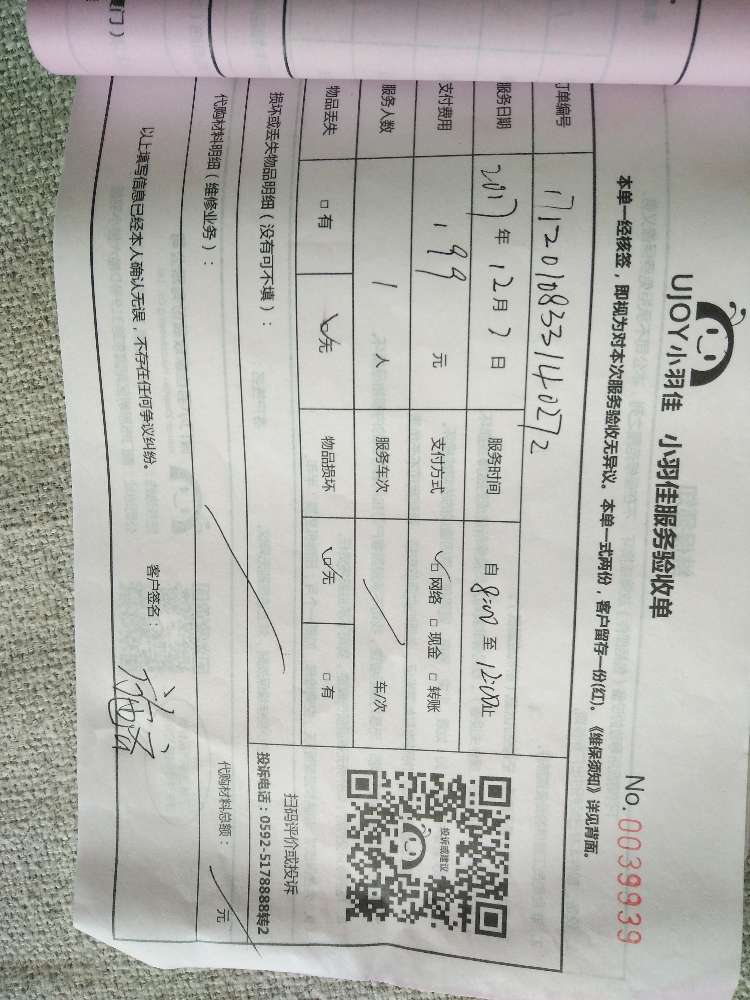 UJOY小羽佳 小羽佳服务验收单
No.0039939
本单一经核签，即视为对本次服务验收无异议。本单一式两份，客户留存一份(红)。《维保须知》详见背面。
订单编号 1712010833140272
服务日期 2017年12月2日 服务时间 自8:00至12:00止
支付费用 199元 支付方式 ☑网络 □现金 □转账
服务人数 1人 服务车次 车/次
物品丢失 □有 ☑无 物品损坏 ☑无 □有
投诉或建议
扫码评价或投诉
投诉电话：0592-5178888转2
损坏或丢失物品明细（没有可不填）：
代购材料明细（维修业务）：
代购材料总额： 元
以上填写信息已经本人确认无误，不存在任何争议纠纷。 客户签名：
门）